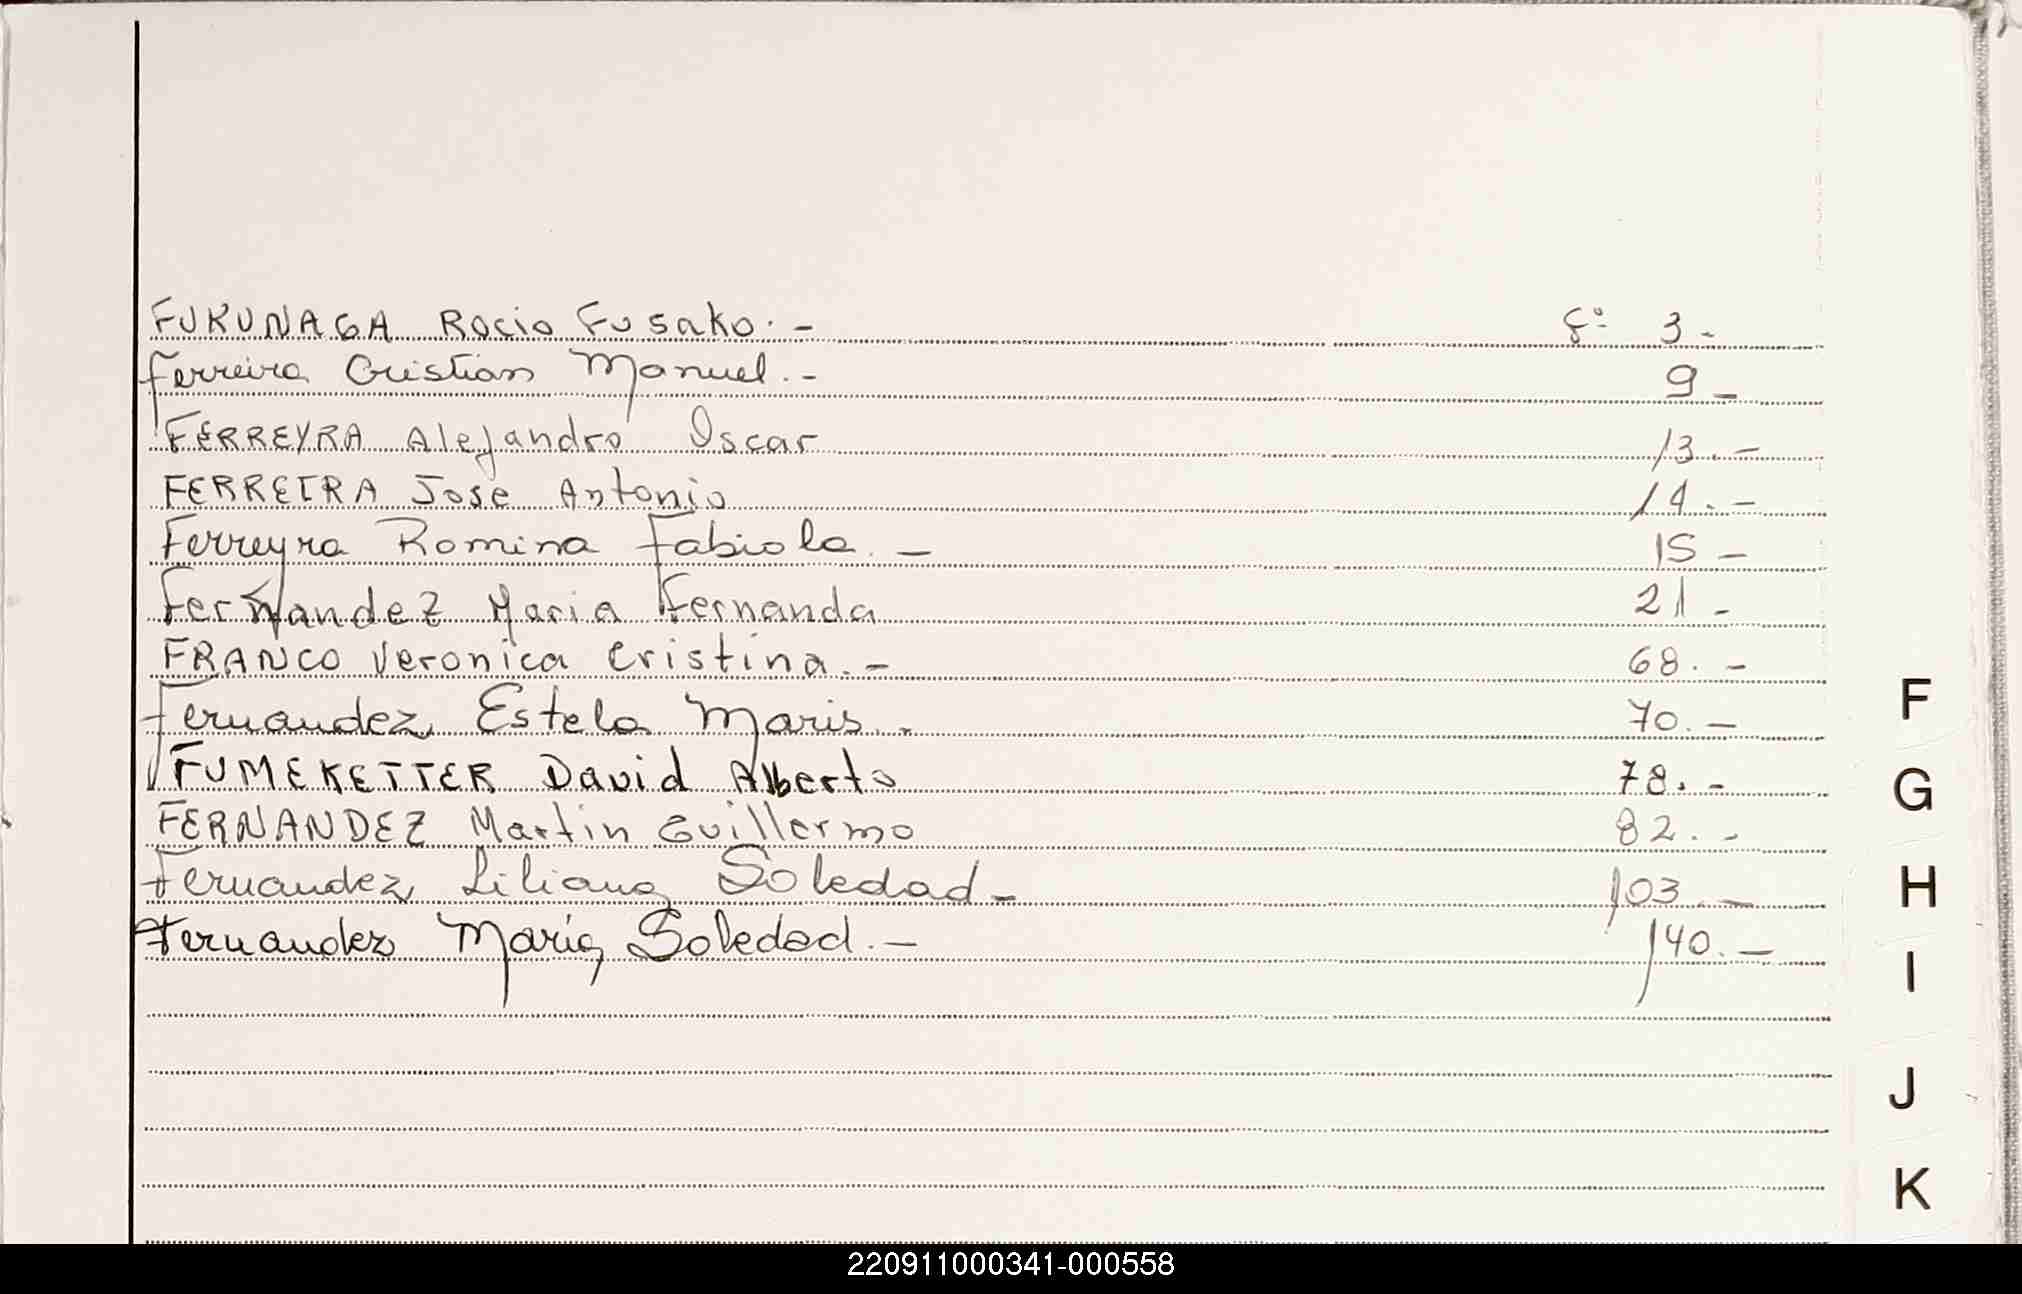 FUKUNAGA Rocio Fusako.- fº 3.-
Ferreira Cristian Manuel.- 9-
FERREYRA Alejandro Oscar 13.-
FERREIRA Jose Antonio 14.-
Ferreyra Romina Fabiola.- 15-
Fernandez Maria Fernanda 21-
FRANCO Veronica Cristina.- 68.-
Fernandez Estela Maris.- 70.-
FUMEKETTER David Alberto 78.-
FERNANDEZ Martin Guillermo 82.-
Fernandez Liliana Soledad- 103.-
Fernandez María Soledad.- 140.-
F
G
H
I
J
K
220911000341-000558